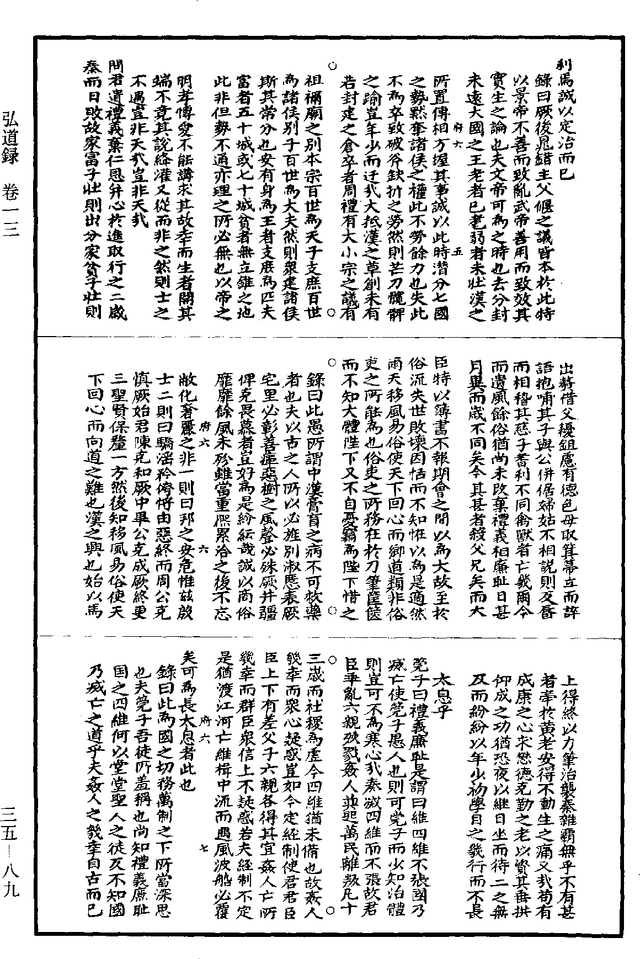 弘道錄　卷一三
三五—八九
利焉誠以定治而已
錄曰厥後鼂錯主父偃之議皆本於此特
以景帝不善而致亂武帝善用而致效其
實生之論也夫文帝可為之時也去分封
未遠大國之王老者已耄弱者未壯漢之
所置傅相方握其事誠以此時潛分七國
之勢默奪諸侯之權此不勞餘力也失此
不為卒致破斧缺折之勞然則芒刃髖髀
之喻豈年少而迂我大抵漢之草創未有
若封建之倉卒者周禮有大小宗之議有
祖禰廟之別本宗百世為天子支庶百世
為諸侯別子百世為大夫然則眾建諸侯
斯其常分也安有身為王者支庶為匹夫
富者五十城或七十城貧者無立錐之地
此非但勢不通亦理之所必無也以帝之
明孝博愛不能講求其故幸而生者開其
端不竟其說絳灌又從而非之然則士之
不遇豈非天哉豈非天哉
問君遺禮義棄仁恩并心於進取行之二歲
秦而日敗故家富子壯則出分家貧子壯則
出贅借父耰鉏慮有德色母取箕箒立而誶
語抱哺其子與公併倨婦姑不相說則反脣
而相稽其慈子耆利不同禽獸者亡幾爾今
而遺風餘俗猶尚未改棄禮義相廉恥日甚
月異而歲不同矣今其甚者殺父兄矣而大
臣特以簿書不報期會之間以為大故至於
俗流失世敗壞因恬而不知怪以為是適然
爾夫移風易俗使天下回心而鄉道類非俗
吏之所能為也俗吏之所務在於刀筆筐篋
而不知大體陛下又不自憂竊為陛下惜之
錄曰此愚所謂中漢膏肓之病不可救藥
者也夫以古之人所以必旌別淑慝表厥
宅里必彰善癉惡樹之風聲必殊厥井疆
俾克畏慕者豈好為是紛紜哉誠以商俗
靡靡餘風未殄雖當重熙累洽之後不忘
敝化奢麗之非一則曰邦之安危惟茲殷
士二則曰驕淫矜侉將由惡終而周公克
慎厥始君陳克和厥中畢公克成厥終更
三聖賢保釐一方然後知移風易俗使天
下回心而向道之難也漢之興也始以馬
上得終以刀筆治襲秦雜霸無乎不有甚
者牽於黃老安得不動生之痛又哉苟有
成康之心求懋德克勤之老以資其垂拱
仰成之功猶恐夜以繼日坐而待二之無
及而紛紛以年少初學目之幾行而不長
太息乎
筦子曰禮義廉恥是謂四維四維不張國乃
滅亡使筦子愚人也則可筦子而少知治體
則豈可不為寒心哉秦滅四維而不張故君
臣乖亂六親殃戮姦人並起萬民離叛凡十
三歲而社稷為虛今四維猶未備也故姦人
幾幸而眾心疑惑豈如今定經制使君君臣
臣上下有差父子六親各得其宜姦人亡所
幾幸而群臣眾信上不疑惑若夫經制不定
是猶渡江河亡維楫中流而遇風波船必覆
矣可為長太息者此也
錄曰此為國之切務萬制之下所當深思
也夫筦子吾徒所羞稱也尚知禮義廉恥
國之四維何以堂堂聖人之徒反不知國
乃滅亡之道乎夫姦人之幾幸自古而已